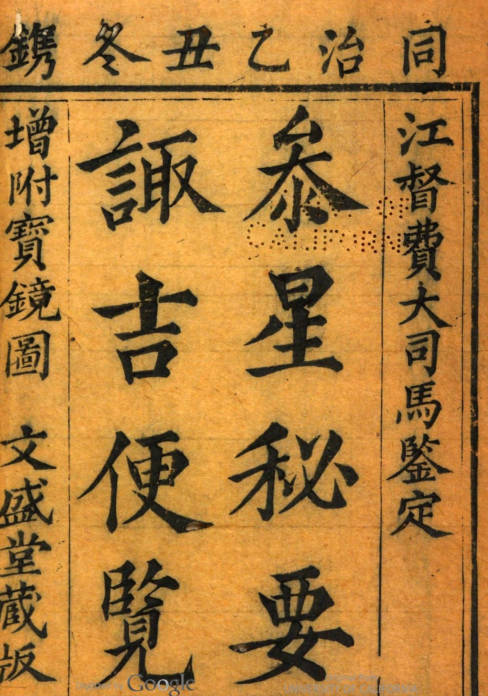 同治乙丑冬鐫
江督費大司馬鑒定
叅星秘要
諏吉便覽
增附寶鏡圖 文盛堂藏版
CALIFORN
Google